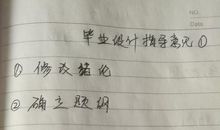 NO.
Date
毕业设计指导意见①
① 修改绪论
② 确立题纲